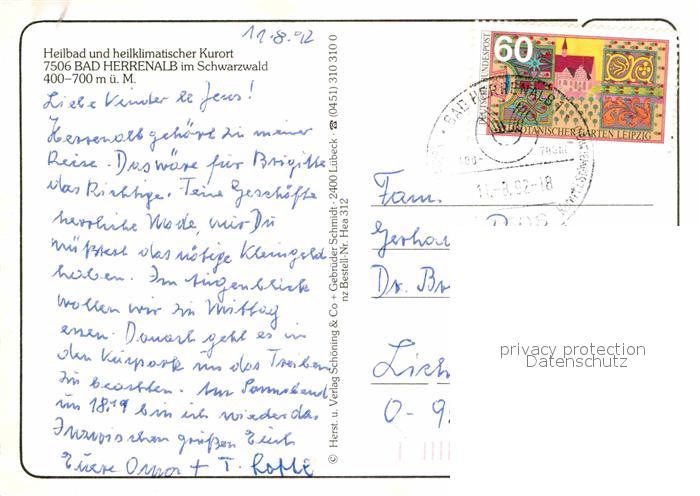 11.8.92
Heilbad und heilklimatischer Kurort
7506 BAD HERRENALB im Schwarzwald
400–700 m ü. M.
Liebe Kinder
Herrenalb gehört zu meiner
Reise. Das wäre für Brigitte
das Richtige. Feine Geschäfte
herrliche Mode, nur Du
müßtest das nötige Kleingeld
haben. Im Augenblick
wollen wir zu Mittag
essen. Danach geht es in
den Kurpark um das Treiben
zu beachten. Am Sonnabend
um 18.19 bin ich wieder da.
Inzwischen grüßen Euch
Eure Oma + T.
© Herst. u. Verlag Schöning & Co + Gebrüder Schmidt · 2400 Lübeck ☎ (0451) 310 310 0
nz Bestell-Nr. Hea 312
60
DEUTSCHE BUNDESPOST
BOTANISCHER GARTEN LEIPZIG
BAD HERRENALB
11.-8.92-18
Fam.
Gerha
Dr. Br
Lich
O-9
privacy protection
Datenschutz